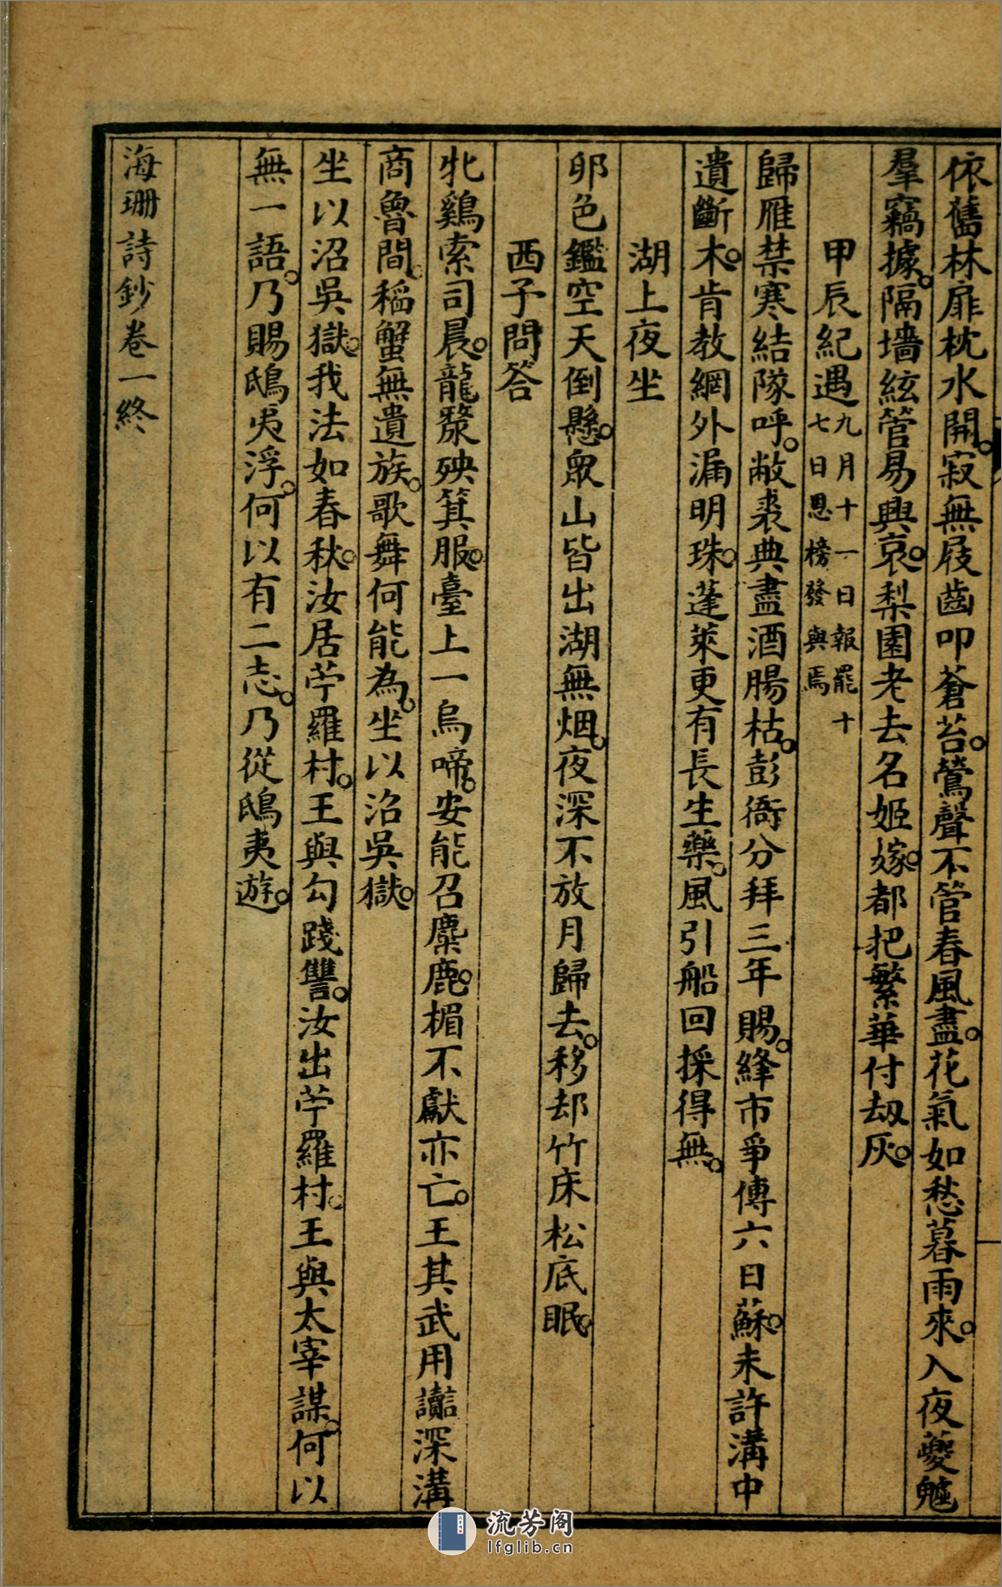 依舊林扉枕水開。寂無屐齒叩蒼苔。鶯聲不管春風盡。花氣如愁暮雨來。入夜夔魖
羣竊據。隔墻絃管易興哀。梨園老去名姬嫁。都把繁華付刼灰。
甲辰紀遇九月十一日報罷十七日恩榜發與焉
歸雁禁寒結隊呼。敝裘典盡酒腸枯。彭衙分拜三年賜。絳市爭傳六日蘇。未許溝中
遺斷木。肯教網外漏明珠。蓬萊更有長生藥。風引船回採得無。
湖上夜坐
卵色鑑空天倒懸。眾山皆出湖無烟。夜深不放月歸去。移却竹床松底眠。
西子問答
牝鷄索司晨。龍漦殃箕服。臺上一烏啼。安能召麋鹿。楣不獻亦亡。王其武用讟深溝
商魯間。稻蟹無遺族。歌舞何能為。坐以沼吳獄。
坐以沼吳獄。我法如春秋。汝居苧羅村。王與勾踐讐。汝出苧羅村。王與太宰謀。何以
無一語。乃賜鴟夷浮。何以有二志。乃從鴟夷遊。
海珊詩鈔卷一終
流芳阁
lfglib.cn